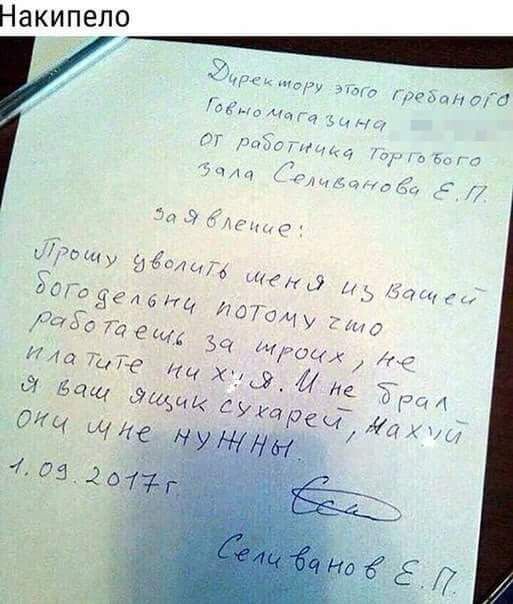 Накипело
Директору этого гребаного
Говномагазина
от работника Торгового
зала Селиванова Е.П.
заявление:
Прошу уволить меня из вашей
богодельни потому что
работаешь за троих, не
платите ни хуя. И не брал
я ваш ящик сухарей, нахуй
они мне нужны.
1.09.2017г
Селиванов Е.П.